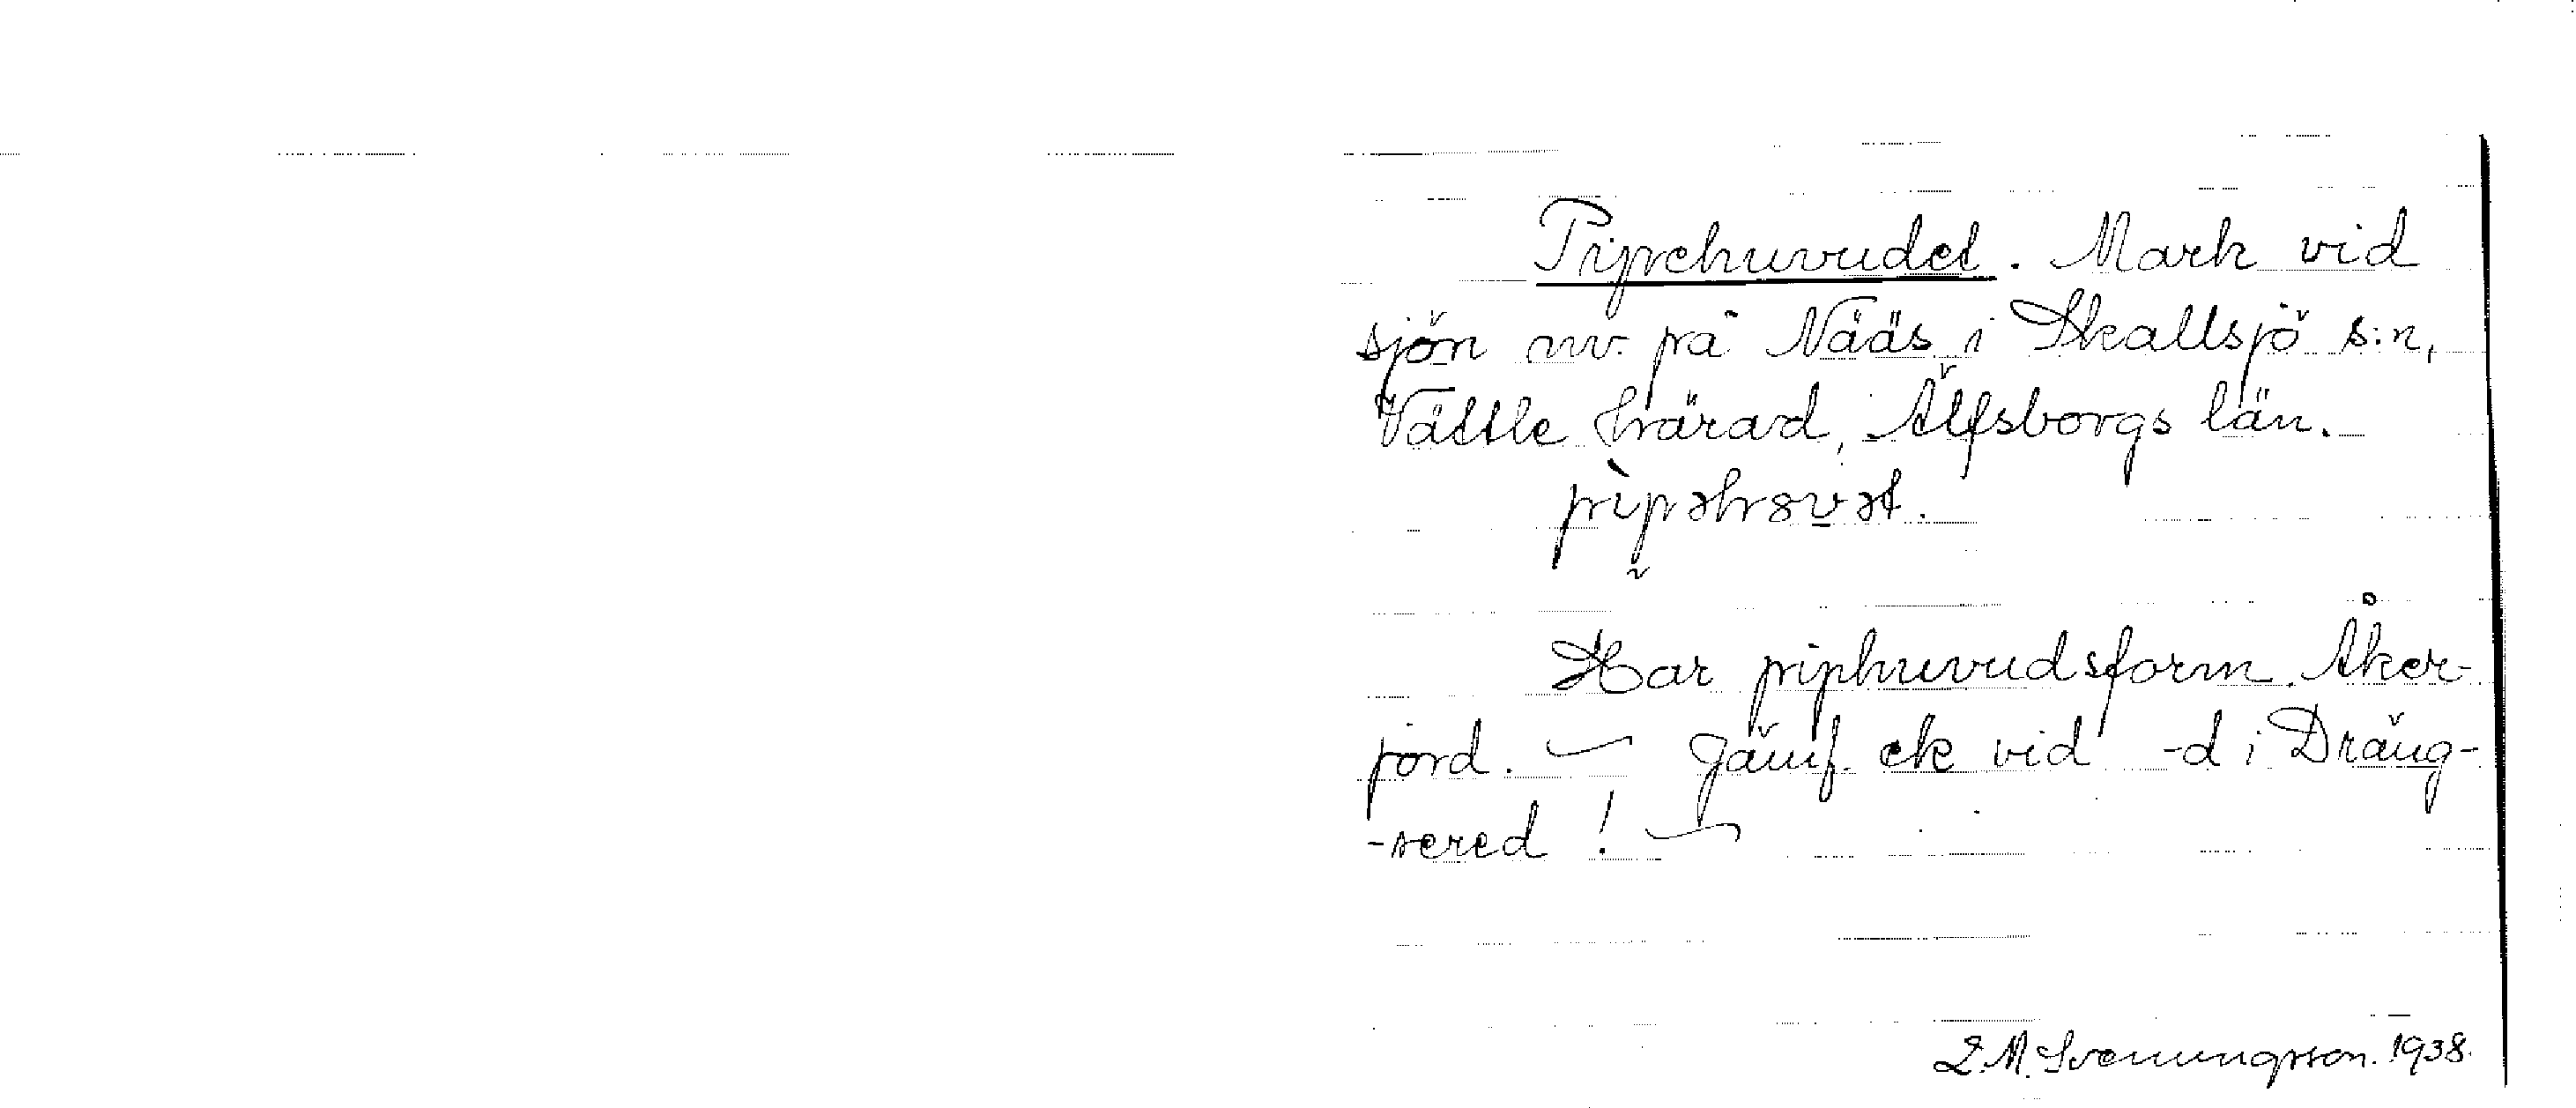 Pipehuvudet. Mark vid
sjön nv. på Nääs i Skallsjö s:n,
Vättle härad, Älfsborgs län.
Har piphuvudsform. Åker-
jord. — Jämf. ek vid -d i Dräng-
-sered! —
L. M. Svenungsson. 1938.